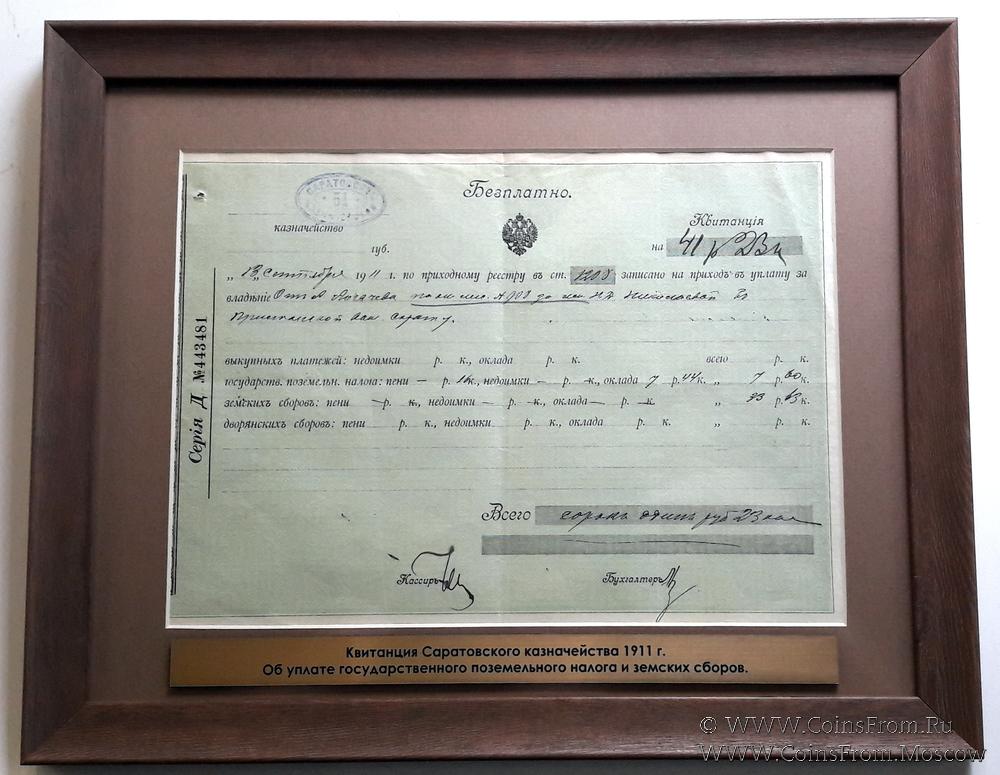 Безплатно.
САРАТОВСК
51
казначейство
губ.
Квитанція
на 41 р 23 к
„13„ Сентября 1911 г. по приходному реестру въ ст. 1208 записано на приходъ въ уплату за
владѣніе
Серія Д №443481
выкупныхъ платежей: недоимки р. к., оклада р. к. всего р. к.
государств. поземельн. налога: пени — р. 16к., недоимки — р. — к., оклада 7 р. 44к. „ 7 р. 60к.
земскихъ сборовъ: пени —р. — к., недоимки — р. — к., оклада— р. — к „ 33 р. 63к.
дворянскихъ сборовъ: пени р. к., недоимки р. к., оклада р. к. „ р. к.
Всего сорокъ одинъ руб 23 коп
Кассиръ
Бухгалтеръ
Квитанция Саратовского казначейства 1911 г.
Об уплате государственного поземельного налога и земских сборов.
© WWW.CoinsFrom.Ru
WWW.CoinsFrom.Moscow